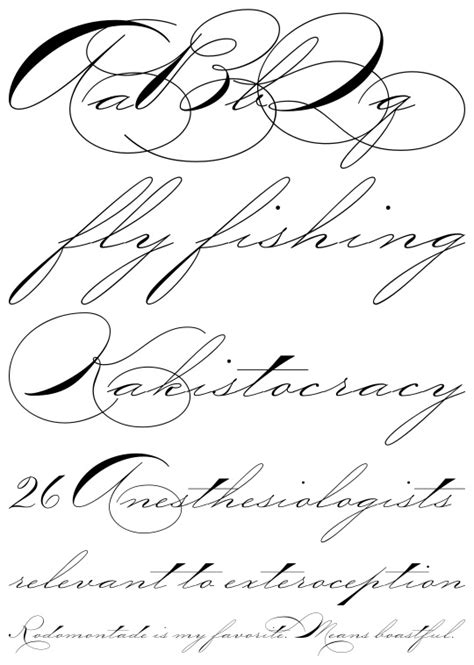 AaBbQq
fly fishing
Kakistocracy
26 Anesthesiologists
relevant to exteroception
Rodomontade is my favorite. Means boastful.